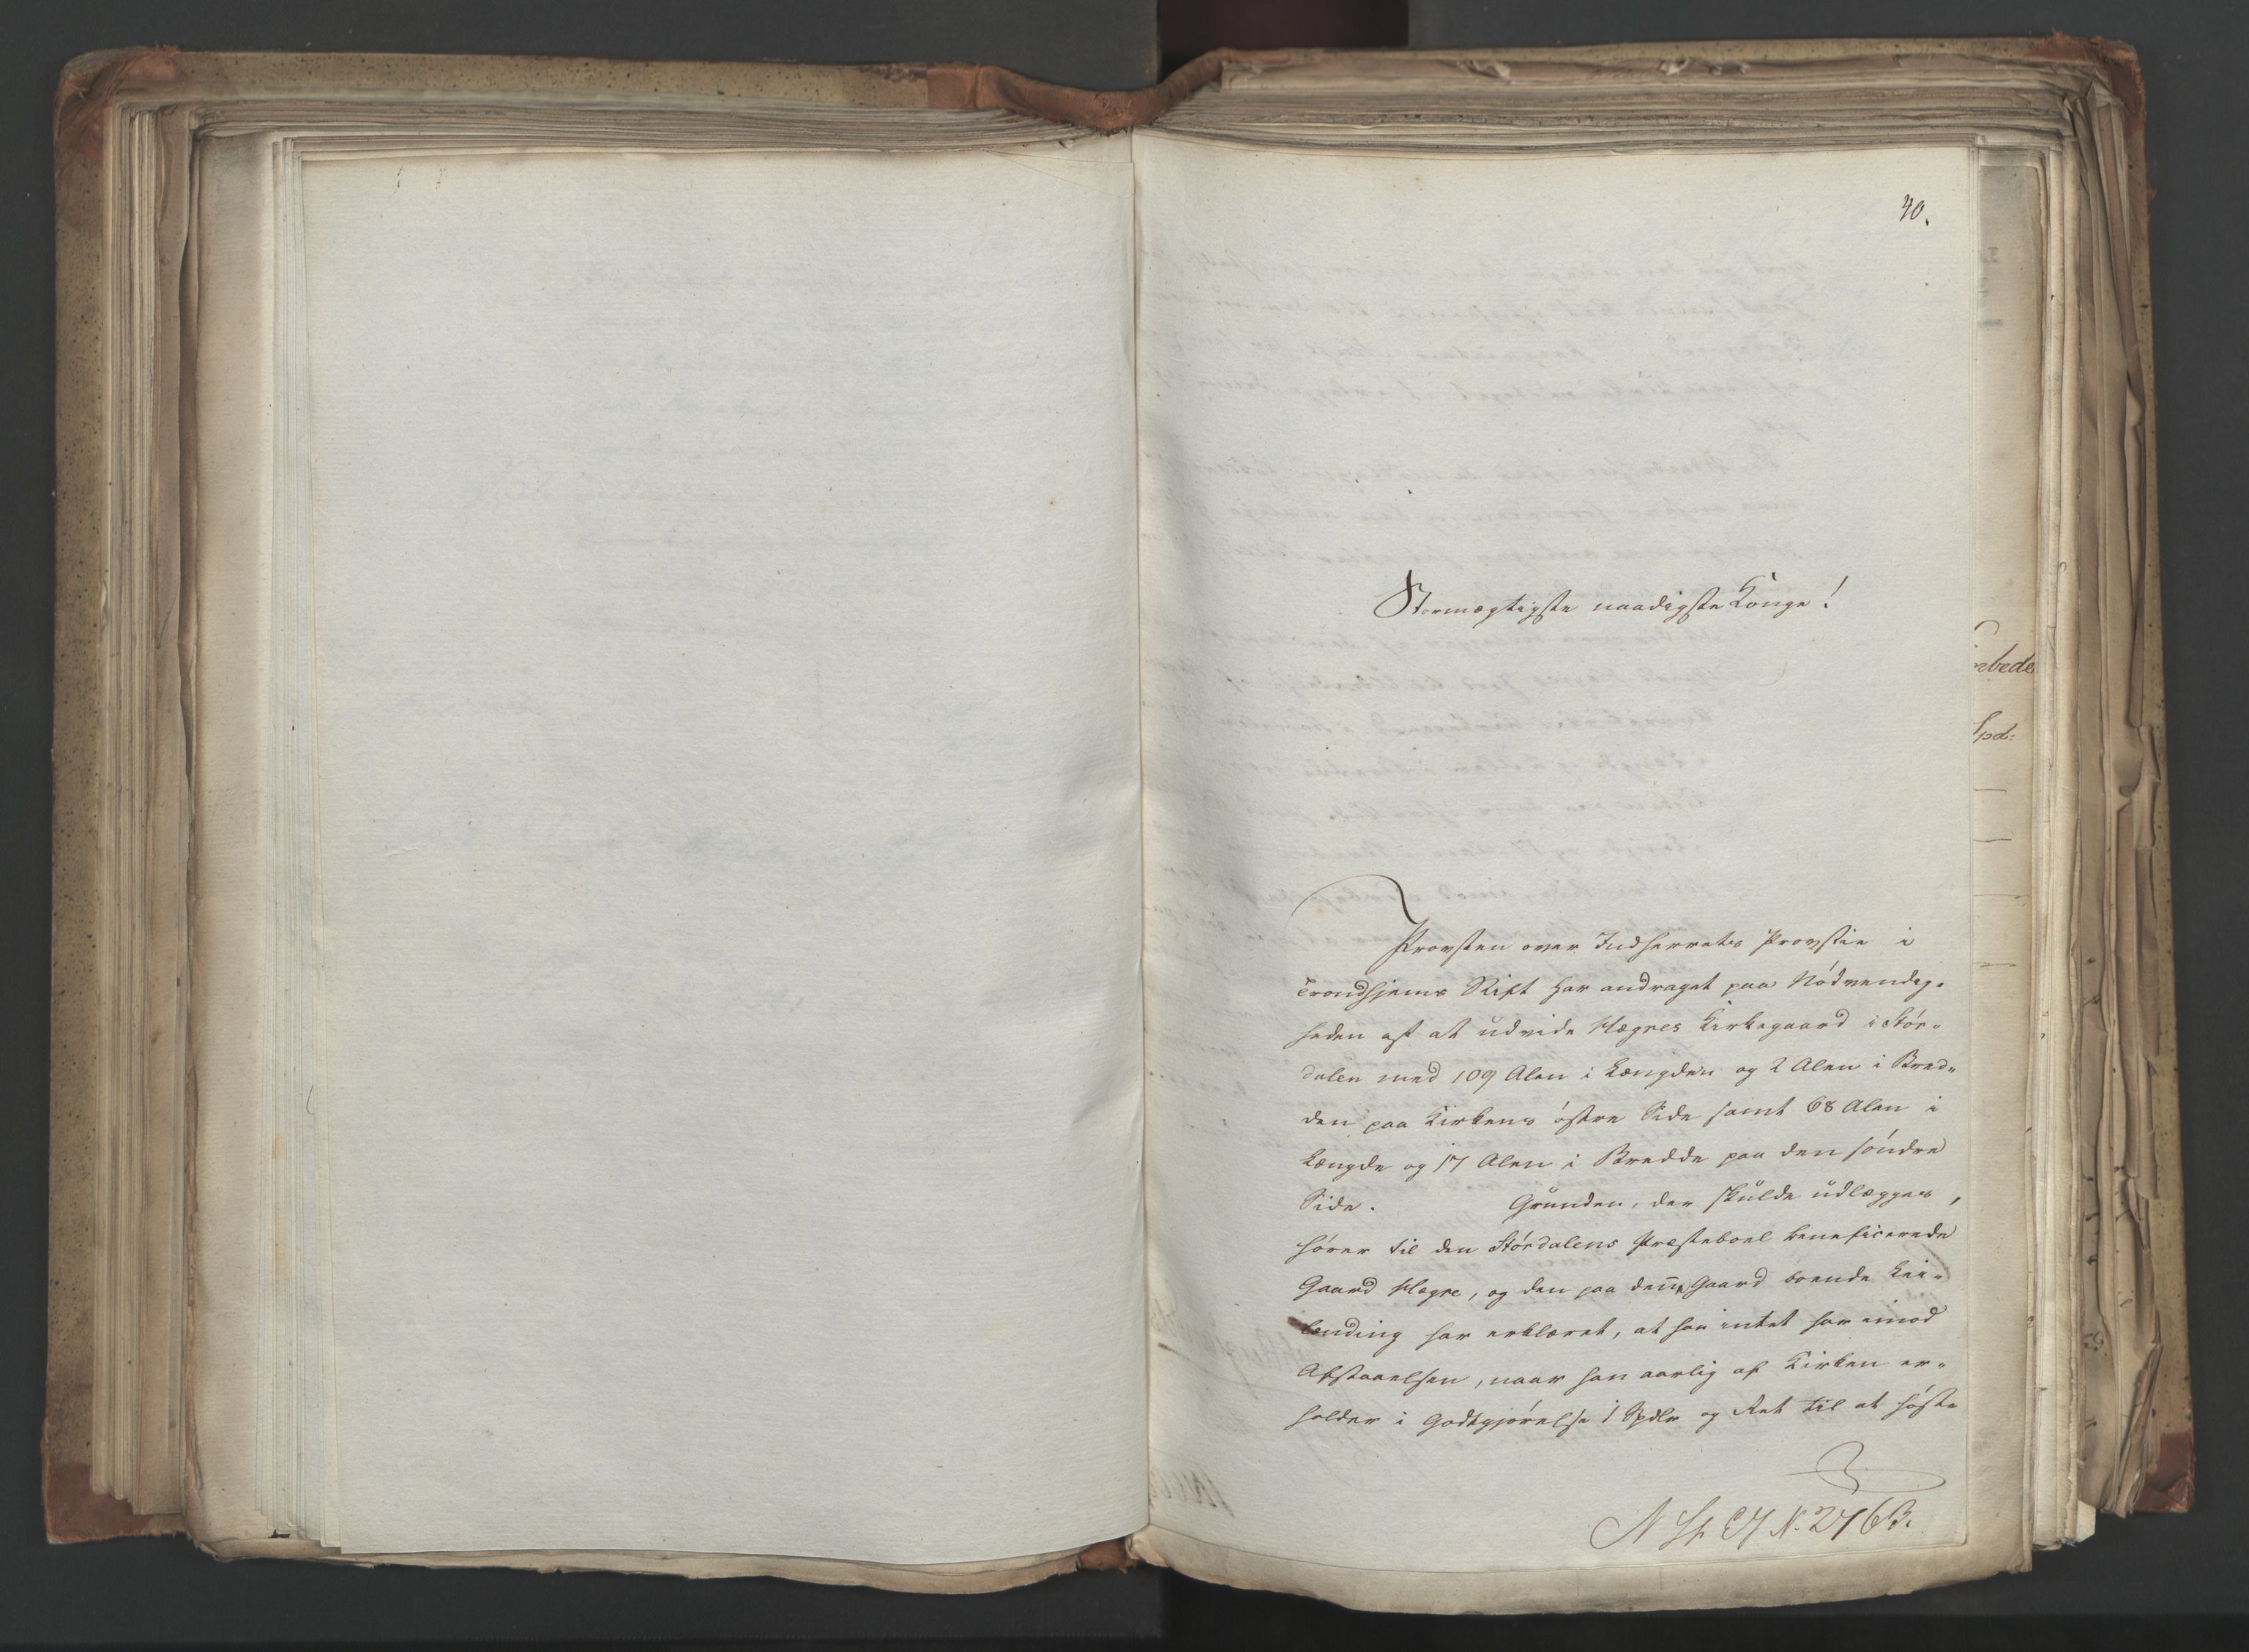 40.
Stormægtigste naadigste Konge!
Provsten over Indherreds Provstie i
Trondhjems Stift har andraget paa Nødvendig-
heden af at udvide Hegres Kirkegaard i Stør-
dalen med 109 Alen i Længden og 2 Alen i Bred-
den paa Kirkens østre Side samt 68 Alen i
Længde og 17 Alen i Bredde paa den søndre
Side. Grunden, der skulde udlægges,
hører til den Størdalens Præsteboel beneficerede
Gaard Hegre, og den paa denne Gaard boende Lei-
lænding har erklæret, at han intet har imod
Afstaaelsen, naar han aarlig af Kirken er-
holder i Godtgjørelse 1 Spdlr og Ret til at høste
N 276B.
nebede
Spd: